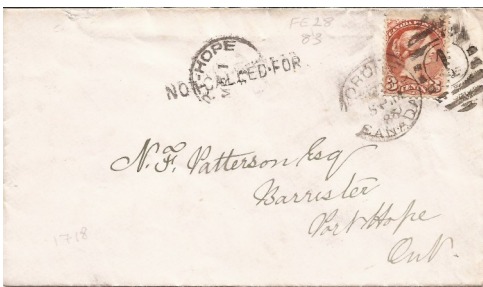 FE 28
83
PORT-HOPE
NOT CALLED FOR
TORONTO
CANADA
N. F. Patterson Esq
Barrister
Port Hope
Ont.
1718